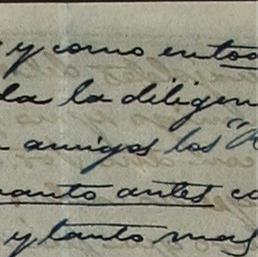 y como en too
da la diligen
amigos los "
uanto antes co
y tanto mas